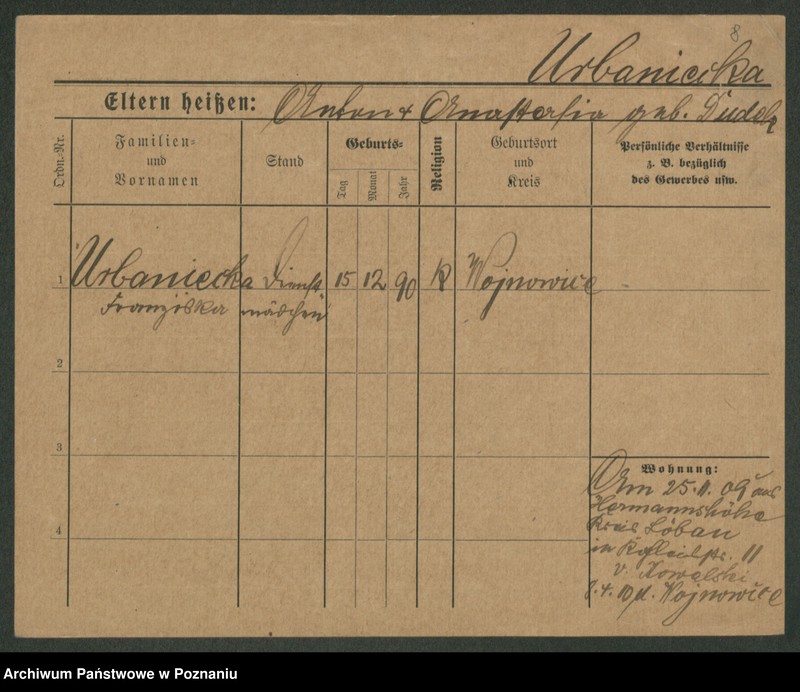 8
Urbaniecka
Eltern heißen: Anton & Anastasia geb. Dudek
Ordn.-Nr.
Familien- und Vornamen
Stand
Geburts-
Tag
Monat
Jahr
Religion
Geburtsort und Kreis
Persönliche Verhältnisse
z. B. bezüglich
des Gewerbes usw.
1 Urbaniecka Dienst 15 12 90 K Wojnowice
Franziska mädchen
2
3
Wohnung:
Am 25.11.09 aus
Hermannshöhe
Kreis Löbau
in 11
4
v. Kowalski
8.4.10 Wojnowice
Archiwum Państwowe w Poznaniu